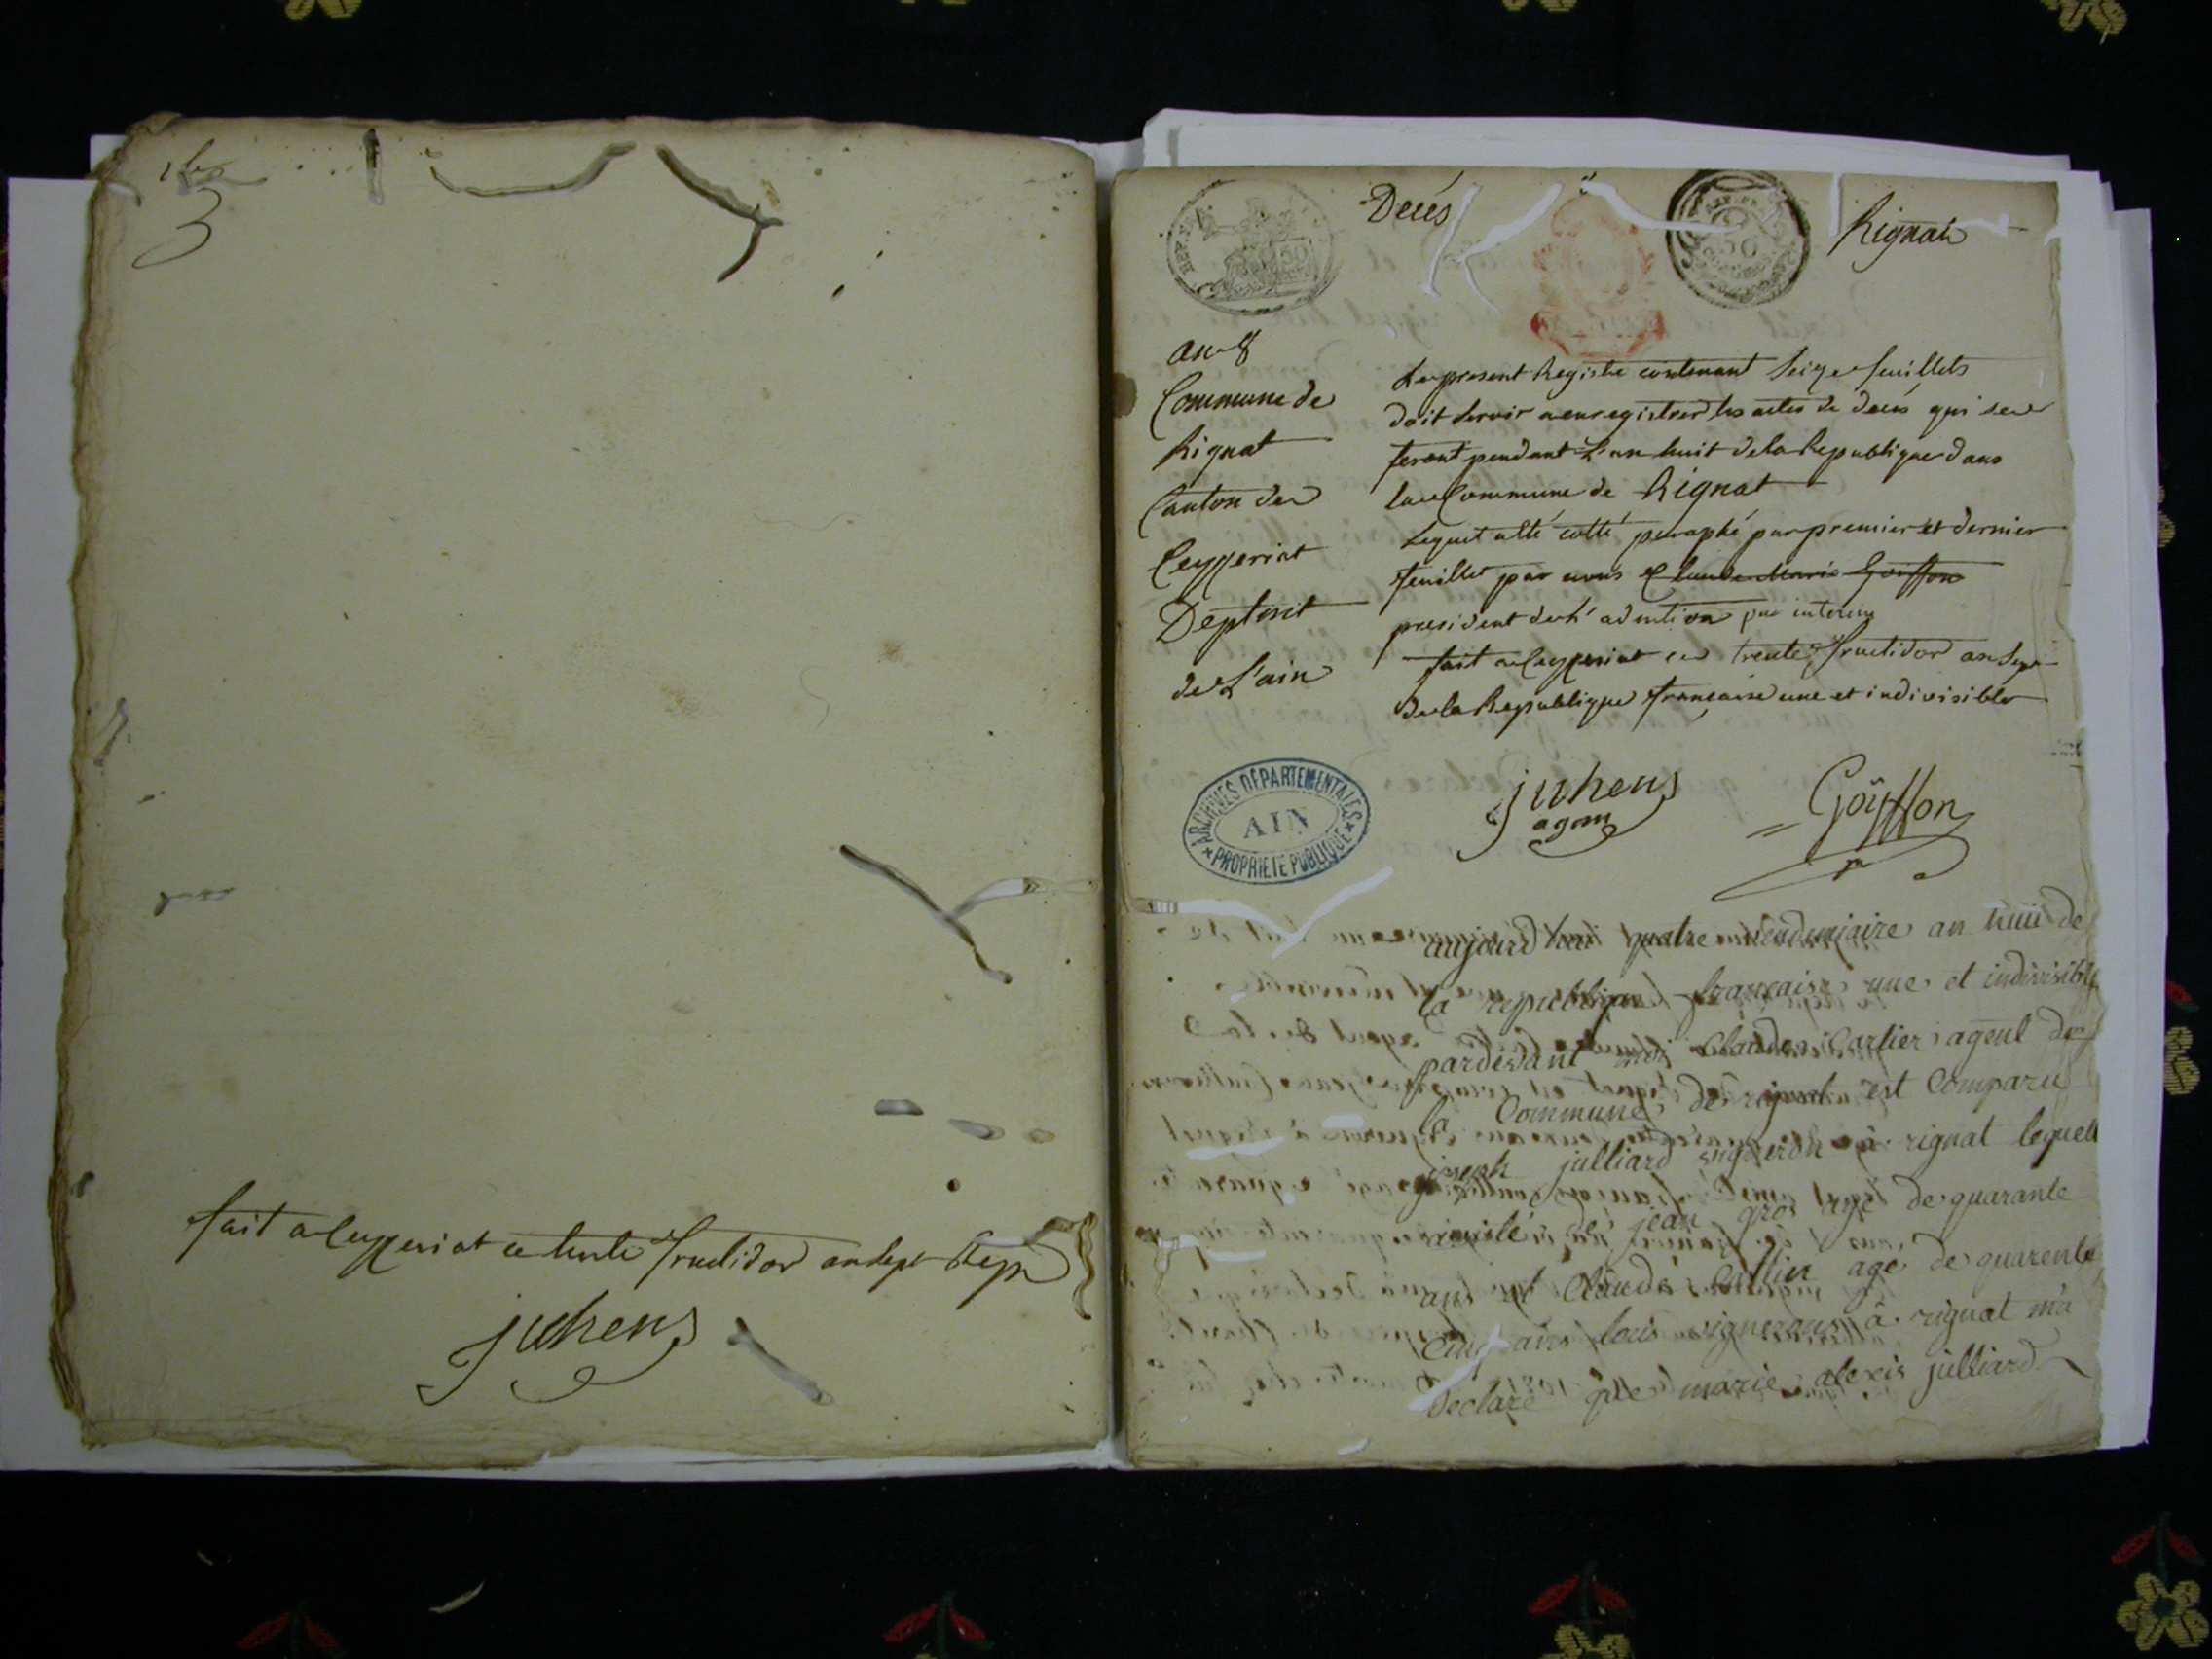 fait a Ceyzeriat ce trente fructidor an sept Rep
juhens
Decés
Rignat
an 8
Commune de
Rignat
Canton de
Ceyzeriat
Deptmt
de L'ain
Le present Registre contenant Seize feuillets
doit Servir a enregistrer les actes de decés qui se
feront pendant L'an huit de la Republique dans
la Commune de Rignat
Lequel a été cotté paraphé par premier et dernier
feuillet par nous Claude Marie Goiffon
president de L'adm̃tion par interim
fait a Ceyzeriat ce trente fructidor an Sept
De la Republique française une et indivisible
juhens
agent
Goÿffon
ARCHIVES DÉPARTEMENTALES
AIN
PROPRIÉTÉ PUBLIQUE
aujourd'hui quatre vendemiaire an huit de
la republique française une et indivisible
pardevant moi Claude Carlier agent de
la Commune de rignat est Comparu
joseph julliard vigneron à rignat lequel
assisté de jean gros agé de quarante
ans et Claude Carlier agé de quarente
Cinq ans tous vignerons à rignat m'a
declaré que marie alexis julliard